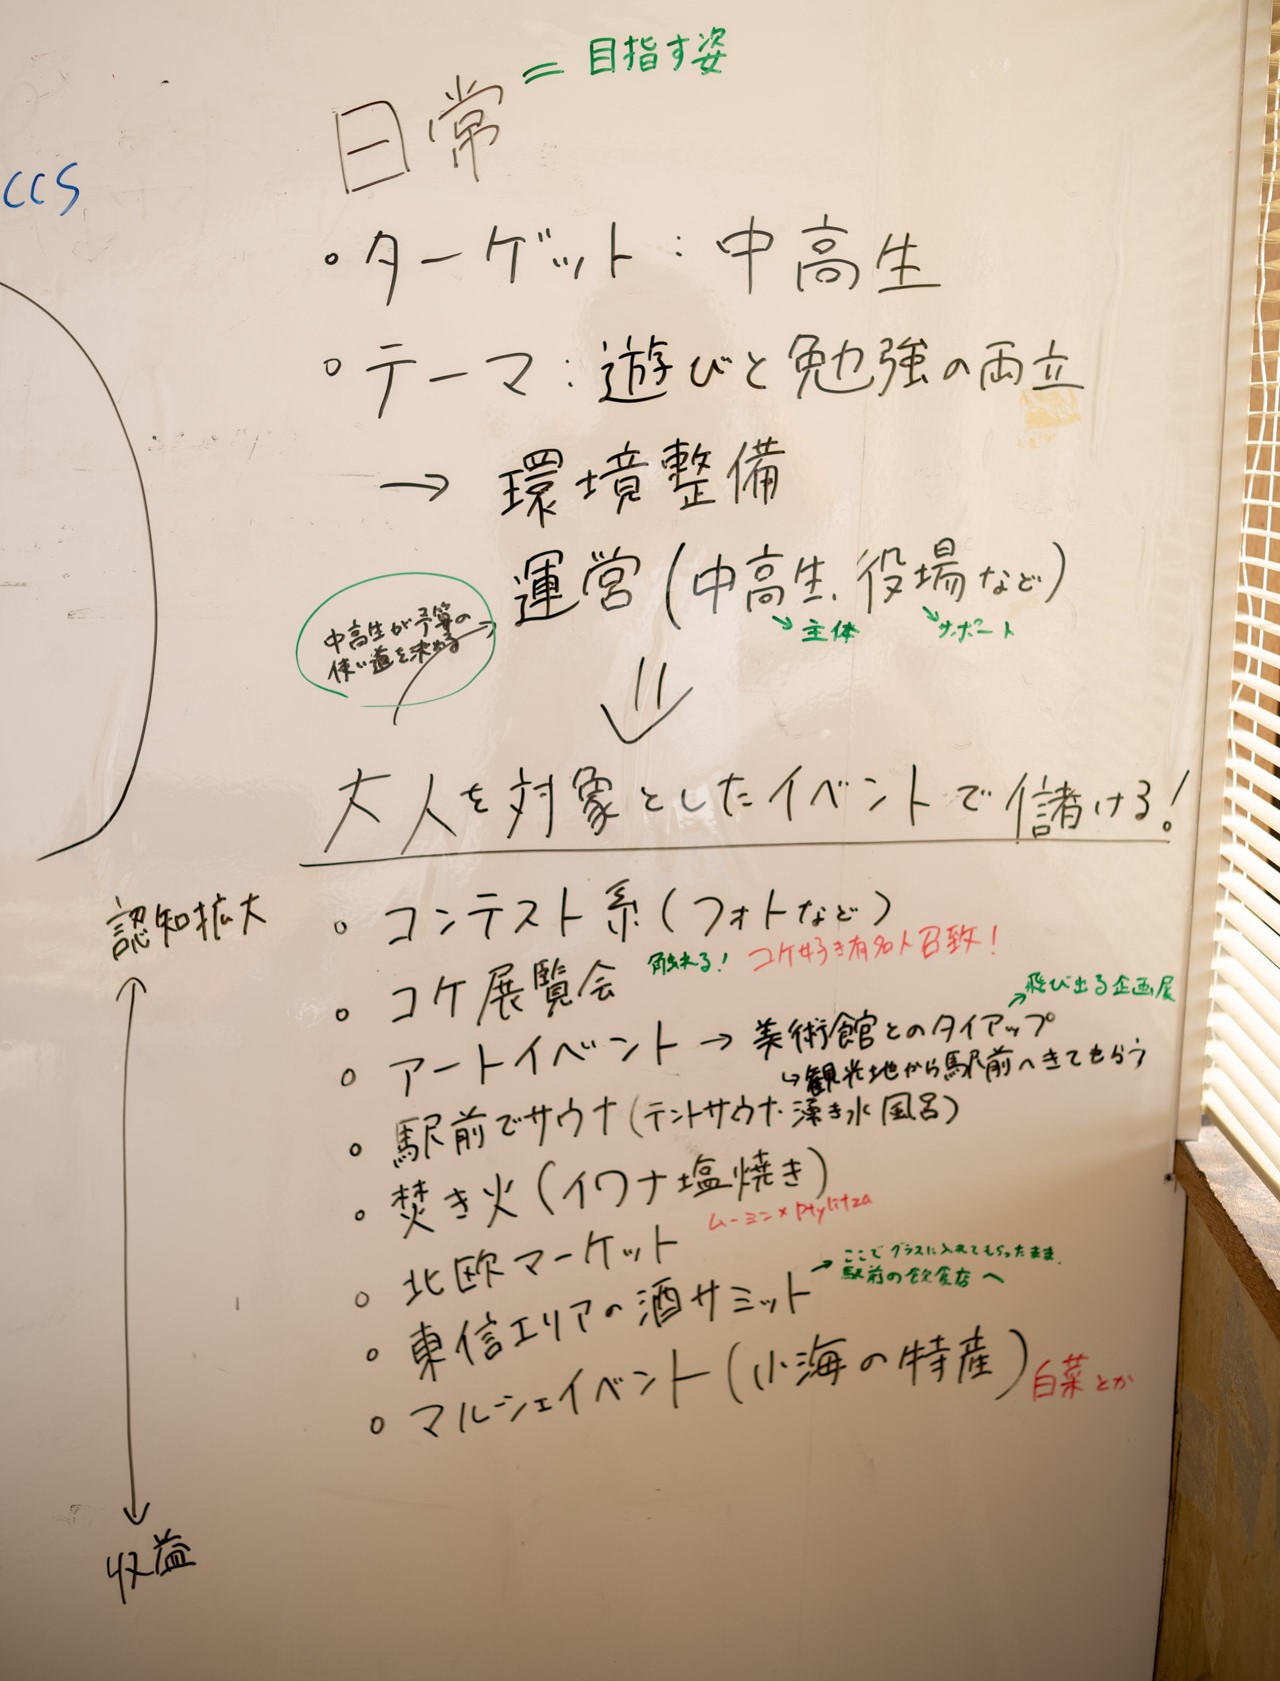 日常 = 目指す姿
CCS
• ターゲット：中高生
• テーマ：遊びと勉強の両立
→ 環境整備
運営(中高生、役場など)
↘主体 ↘サポート
中高生が予算の
使い道を決める
大人を対象としたイベントで儲ける！
認知拡大
• コンテスト系(フォトなど)
• コケ展覧会 触れる！ コケ好き有名人召致！
• アートイベント → 美術館とのタイアップ ↗飛び出る企画展
↳観光地から駅前へきてもらう
• 駅前でサウナ(テントサウナ・湧き水風呂)
• 焚き火(イワナ塩焼き)
• 北欧マーケット ムーミン×
• 東信エリアの酒サミット → ここでグラスに入れてもらったまま、
駅前の飲食店へ
• マルシェイベント(小海の特産) 白菜とか
収益